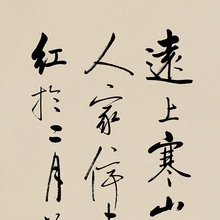 遠上寒山
人家停
紅於二月